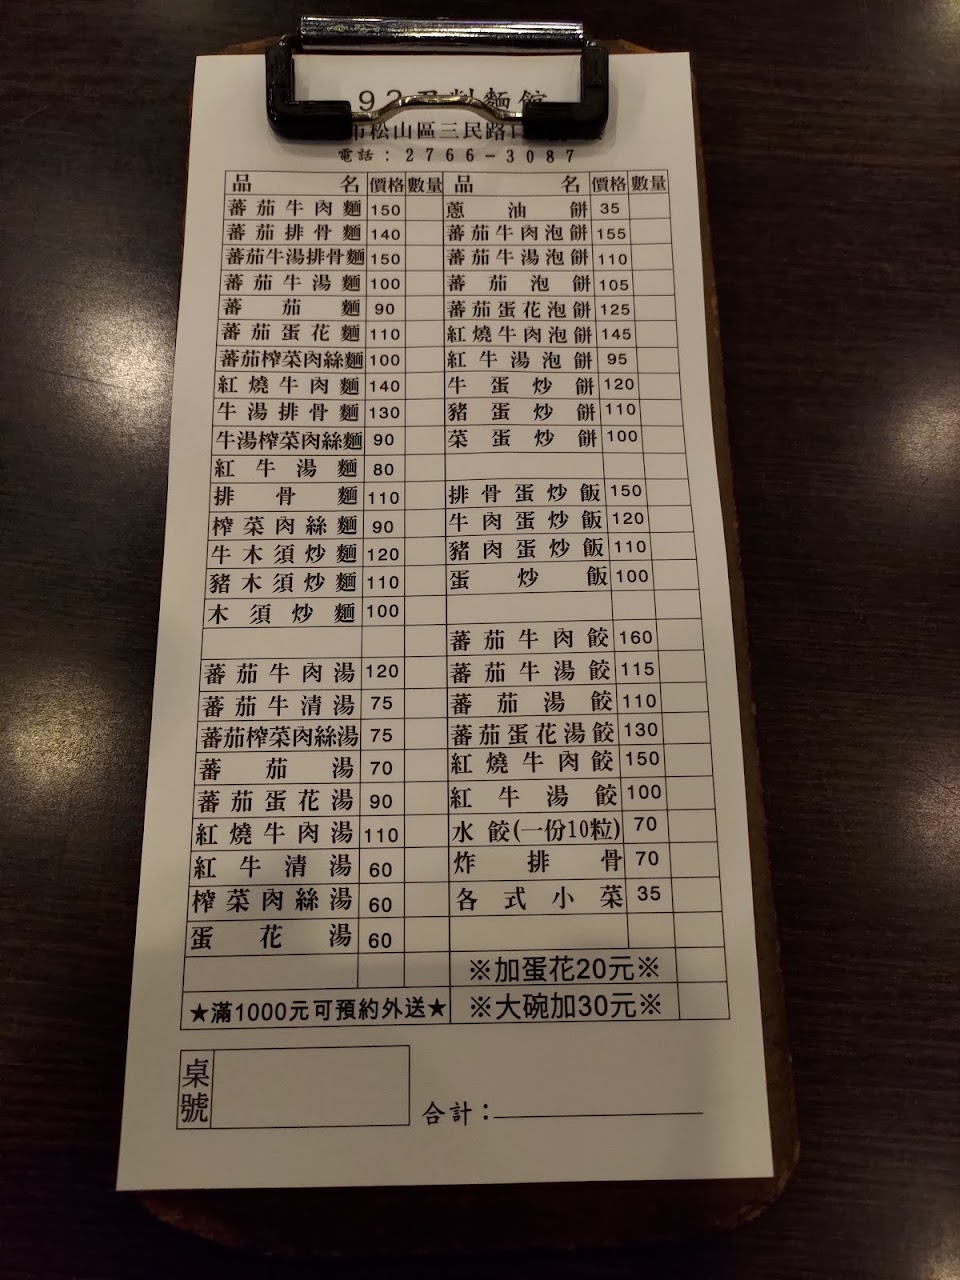 92 麵館
市松山區三民路1
電話：2766－3087
品名 價格 數量 品名 價格 數量
蕃茄牛肉麵 150 蔥油餅 35
蕃茄排骨麵 140 蕃茄牛肉泡餅 155
蕃茄牛湯排骨麵 150 蕃茄牛湯泡餅 110
蕃茄牛湯麵 100 蕃茄泡餅 105
蕃茄麵 90 蕃茄蛋花泡餅 125
蕃茄蛋花麵 110 紅燒牛肉泡餅 145
蕃茄榨菜肉絲麵 100 紅牛湯泡餅 95
紅燒牛肉麵 140 牛蛋炒餅 120
牛湯排骨麵 130 豬蛋炒餅 110
牛湯榨菜肉絲麵 90 菜蛋炒餅 100
紅牛湯麵 80
排骨麵 110 排骨蛋炒飯 150
榨菜肉絲麵 90 牛肉蛋炒飯 120
牛木須炒麵 120 豬肉蛋炒飯 110
豬木須炒麵 110 蛋炒飯 100
木須炒麵 100
蕃茄牛肉餃 160
蕃茄牛肉湯 120 蕃茄牛湯餃 115
蕃茄牛清湯 75 蕃茄湯餃 110
蕃茄榨菜肉絲湯 75 蕃茄蛋花湯餃 130
蕃茄湯 70 紅燒牛肉餃 150
蕃茄蛋花湯 90 紅牛湯餃 100
紅燒牛肉湯 110 水餃(一份10粒) 70
紅牛清湯 60 炸排骨 70
榨菜肉絲湯 60 各式小菜 35
蛋花湯 60
※加蛋花20元※
★滿1000元可預約外送★ ※大碗加30元※
桌號
合計：